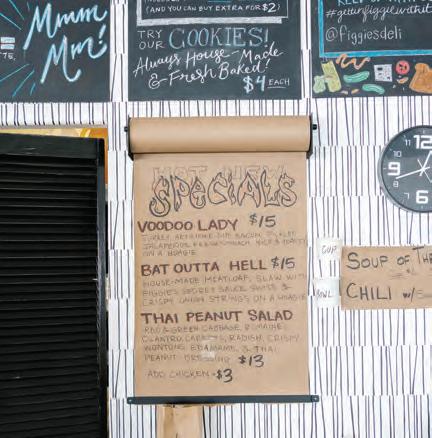 Mmm
Mm!
(AND YOU CAN BUY EXTRA FOR $2)
TRY
OUR COOKIES!
Always House-Made
& Fresh Baked!
$4 EACH
#gettinfiggiewithit
@figgiesdeli
HOT NEW
SPECIALS
VOODOO LADY $15
ON A HOAGIE
BAT OUTTA HELL $15
HOUSE-MADE MEATLOAF, SLAW WITH
FIGGIE'S SECRET SAUCE, SWISS &
CRISPY ONION STRINGS ON A HOAGIE
THAI PEANUT SALAD
RED & GREEN CABBAGE, ROMAINE,
CILANTRO, CARROTS, RADISH, CRISPY
WONTONS, EDAMAME, & THAI
PEANUT DRESSING $13
ADD CHICKEN - $3
CUP
SOUP OF THE
BOWL
CHILI w/
11
12
10
9
8
7
6